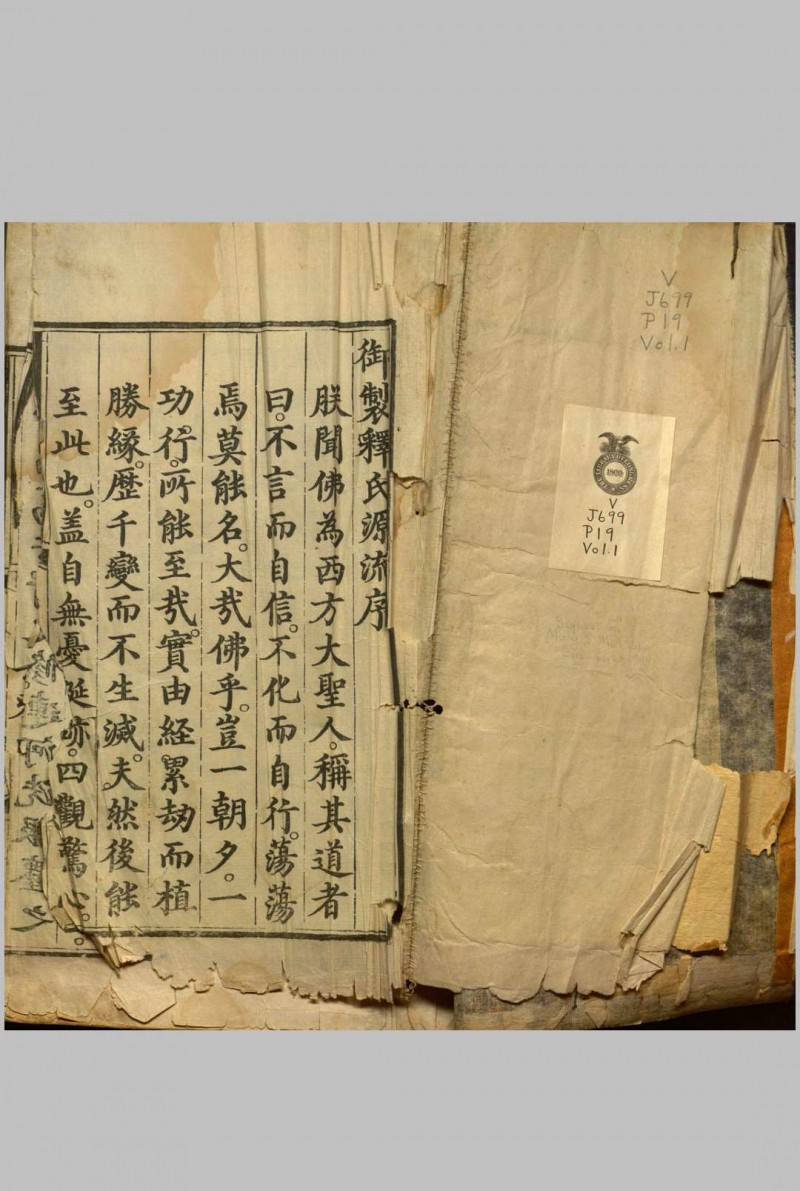 御製釋氏源流序
朕聞佛為西方大聖人。稱其道者
曰。不言而自信。不化而自行。蕩蕩
焉莫能名。大㢤佛乎。豈一朝夕。一
功行。所能至㢤。實由経累劫而植
勝緣。歷千變而不生滅。夫然後能
至此也。盖自無憂延㡿。四觀驚心。
V
J699
P19
Vol.1
1909
V
J699
P19
Vol.1